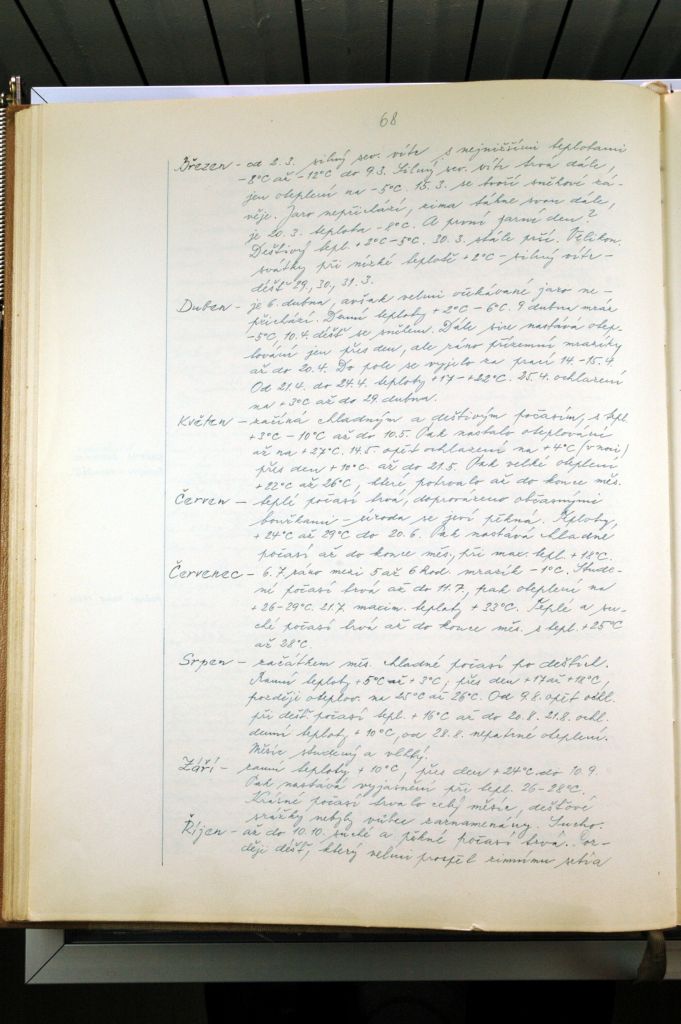 68
Březen - od 2.3. silný sev. vítr s nejnižšími teplotami
-8°C až -12°C do 9.3. Silný sev. vítr trvá dále,
jen oteplení na -5°C. 15.3. se tvoří sněhové zá-
věje. Jaro nepřichází, zima táhne svou dále,
je 20.3. teplota -8°C. A první jarní den?
Deštivo, tepl. +2°C-5°C. 30.3. stále prší. Velikon.
svátky při nízké teplotě +2°C - silný vítr -
déšť 29., 30., 31.3.
Duben - je 6. dubna, avšak velmi očekávané jaro ne-
přichází. Denní teploty +2°C - 6°C. 9 dubna mráz
-5°C, 10.4. déšť se sněhem. Dále sice nastává otep-
lování jen přes den, ale ráno přízemní mrazíky
až do 20.4. Do pole se vyjelo za prací 14.-15.4.
Od 21.4. do 24.4. teploty +17-+22°C. 25.4. ochlazení
na +3°C až do 29. dubna.
Květen - začíná chladným a deštivým počasím, s tepl.
+3°C - 10°C až do 10.5. Pak nastalo oteplování
až na +27°C. 14.5. opět ochlazení na +4°C (v noci)
přes den +10°C. až do 21.5. Pak velké oteplení
+22°C až 26°C, které potrvalo až do konce měs.
Červen - teplé počasí trvá, doprovázeno občasnými
bouřkami - úroda se jeví pěkná. Teploty,
+24°C až 29°C do 20.6. Pak nastává chladné
počasí až do konce měs. při max. tepl. +18°C.
Červenec - 6.7. ráno mezi 5 až 6 hod. mrazík -1°C. Stude-
né počasí trvá až do 11.7., pak oteplení na
+26-29°C. 21.7. maxim. teploty +33°C. Teplé a su-
ché počasí trvá až do konce měs. s tepl. +25°C
až 28°C.
Srpen - začátkem měs. chladné počasí po deštích.
Ranní teploty +5°C až +3°C, přes den +17 až +18°C,
později oteplov. na 25°C až 26°C. Od 9.8. opět ochl.
při dešť. počasí tepl. +16°C až do 20.8. 21.8. ochl.
denní teploty +10°C, od 28.8. nepatrné oteplení.
Měsíc studený a vlhký.
Září - ranní teploty +10°C, přes den +24°C do 10.9.
Pak nastává vyjasnění při tepl. 26-28°C.
Krásné počasí trvalo celý měsíc, dešťové
srážky nebyly vůbec zaznamenány. Sucho.
Říjen - až do 10.10. suché a pěkné počasí trvá. Poz-
ději déšť, který velmi prospěl zimnímu setí a